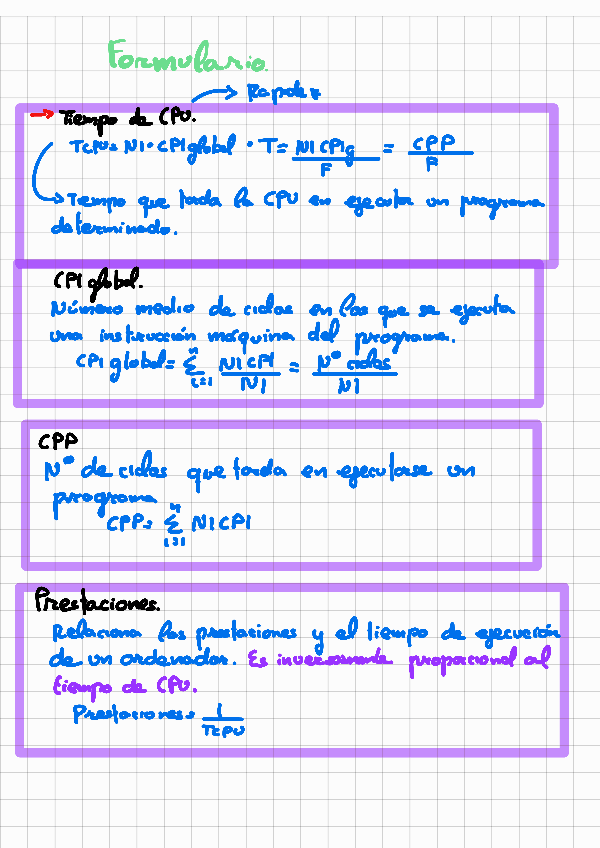 Formulario.
Rapidez
Tiempo de CPU.
TCPU = NI · CPI global · T = NI CPIg / F = CPP / F
Tiempo que tarda la CPU en ejecutar un programa
determinado.
CPI global.
Número medio de ciclos en los que se ejecuta
una instrucción máquina del programa.
CPI global = n Σ i=1 NI CPI / NI = Nº ciclos / NI
CPP
Nº de ciclos que tarda en ejecutarse un
programa
CPP = n Σ i=1 NI CPI
Prestaciones.
Relaciona las prestaciones y el tiempo de ejecución
de un ordenador. Es inversamente proporcional al
tiempo de CPU.
Prestaciones = 1 / TCPU